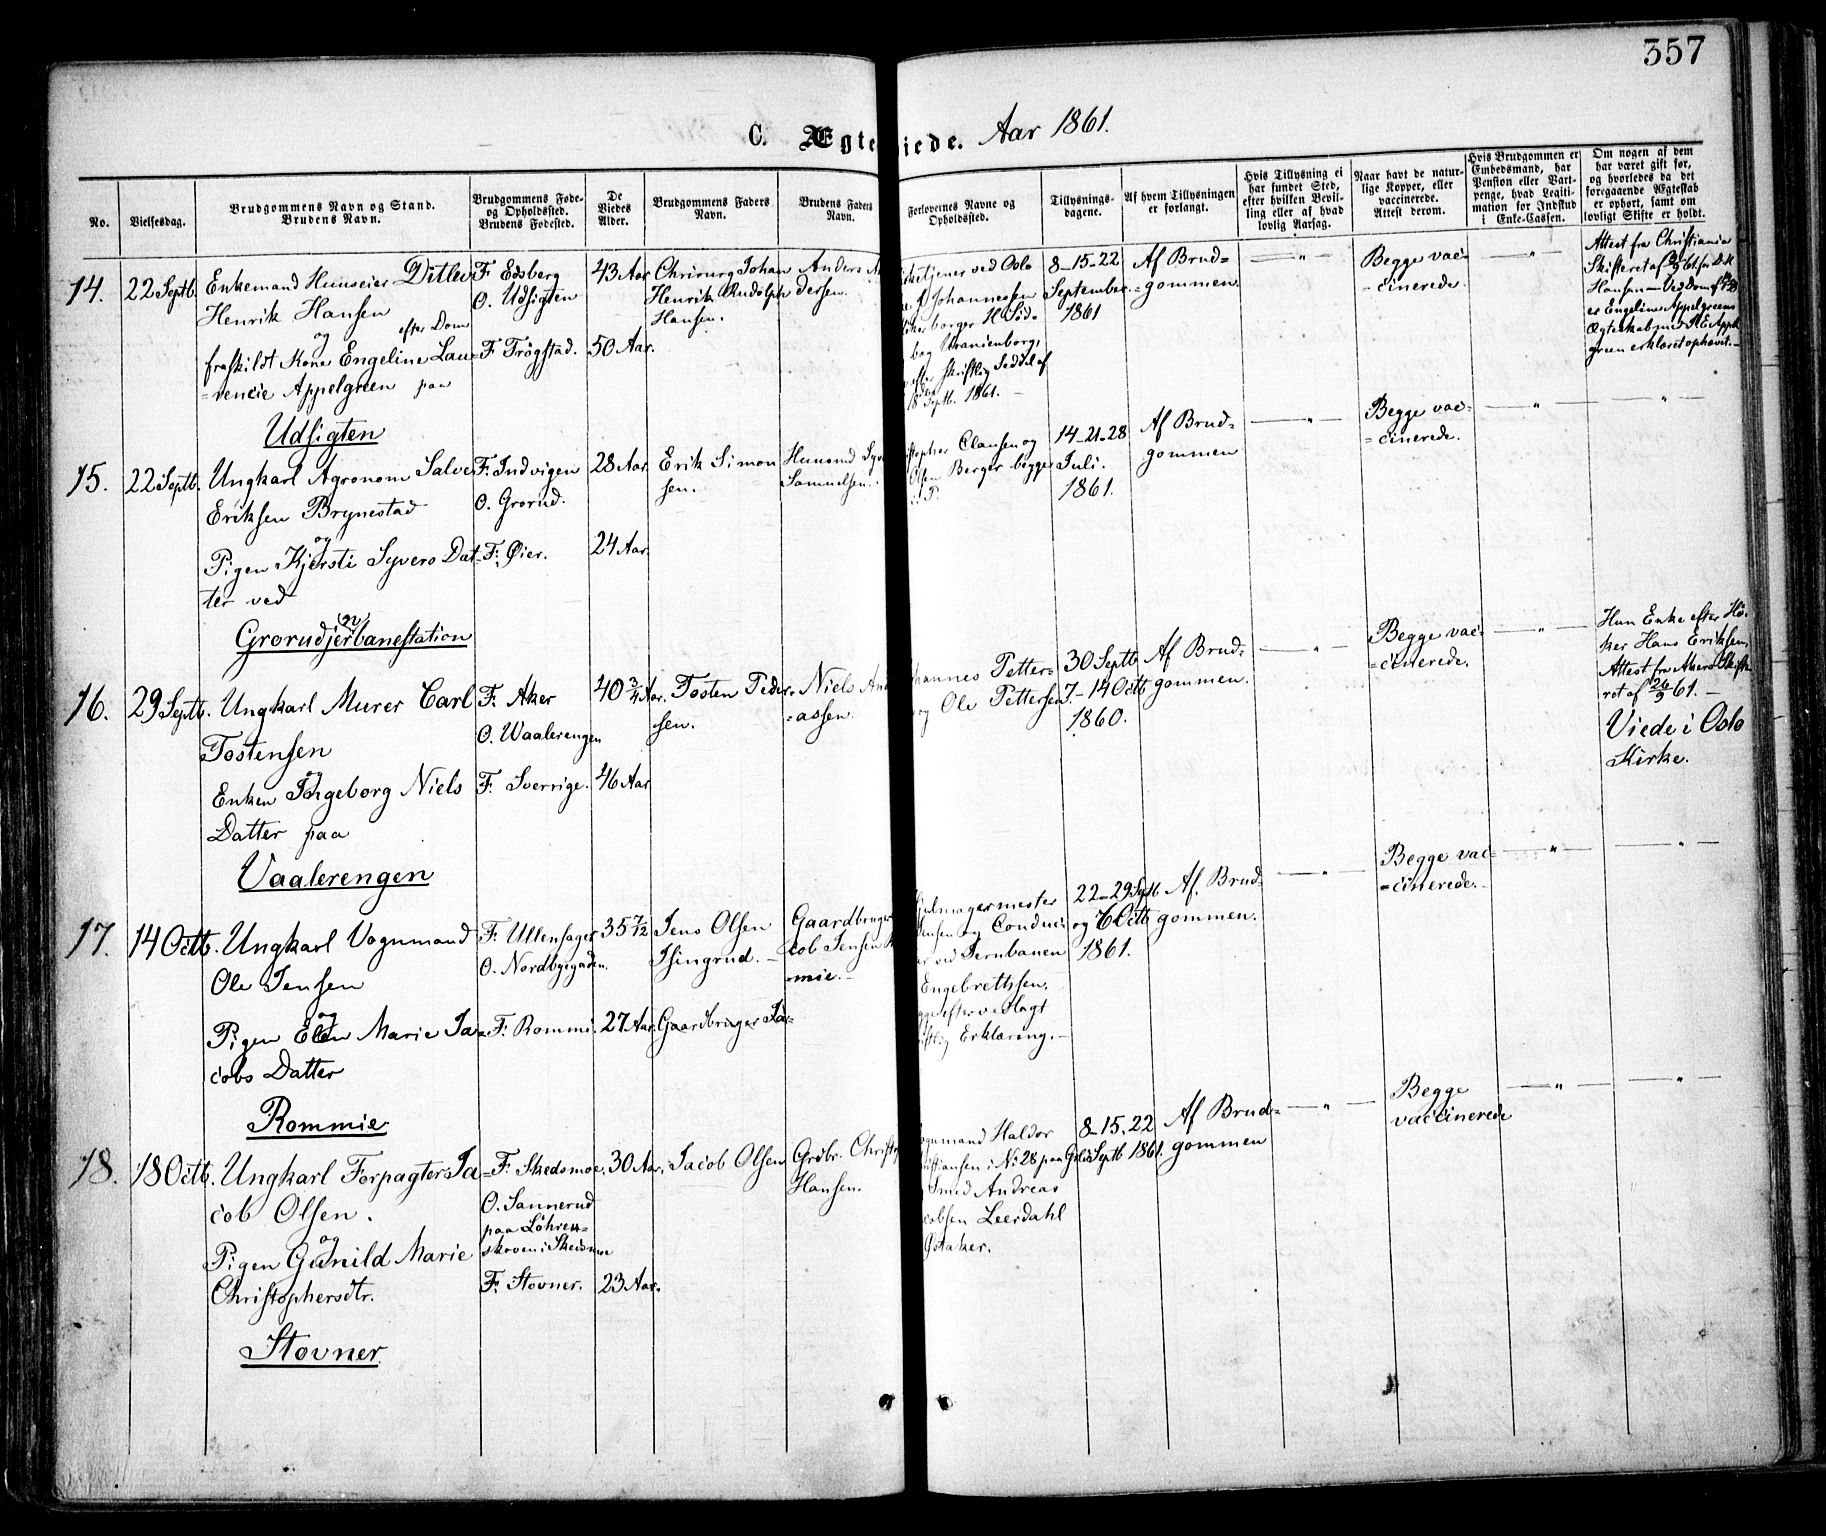 357
C. Ægte iede. Aar 1861.
No.
Vielsesdag.
Brudgommens Navn og Stand.
Brudens Navn.
Brudgommens Føde-
og Opholdssted.
Brudens Fødested.
De
Viedes
Alder.
Brudgommens Faders
Navn.
Brudens Faders
Navn.
Forlovernes Navne og
Opholdssted.
Tillysnings-
dagene.
Af hvem Tillysningen
er forlangt.
Hvis Tillysning ei
har fundet Sted,
efter hvilken Bevil-
ling eller af hvad
lovlig Aarsag.
Naar havt de natur-
lige Kopper, eller
vaccinerede.
Attest derom.
Hvis Brudgommen er
Embedsmand, har
Pension eller Vart-
penge, hvad Legiti-
mation for Indskud
i Enke-Cassen.
Om nogen af dem
har været gift før,
og hvorledes da det
foregaaende Ægteskab
er ophørt, samt om
lovligt Skifte er holdt.
14.
22 Septb.
Enkemand Huuseier Ditlev
Henrik Hansen
og efter Dom
fraskildt Kone Engeline Lau-
=rencie Appelgreen paa
Udsigten
F. Edsberg
O. Udsigten
F Trøgstad.
43 Aar
50 Aar.
Chrirurg Johan
Henrik Rudolph
Hansen.
Anders
dersen.
tjener ved Oslo
Johannessen
borger H. Sid-
bog Uranienborg,
efter skriftlig Seddel af
18 Septb. 1861.
8-15-22
September
1861
Af Brud=
=gommen
— " —
Begge vac-
=cinerede.
— " —
Attest fra Christiania
Skifteret af
Hansen — Ved Dom af
er Engeline Appelgreens
Ægteskab med Appel
green erklæret ophævet. —
15.
22 Septb.
Ungkarl Agronom Salve
Eriksen Brynestad
og
Pigen Kjersti Syvers Dat-
ter ved
Grorudjernbanestation
F. Indvigen
O. Grorud.
F. Øier.
28 Aar.
24 Aar.
Erik Simon
sen.
Samuelsen.
Clausen og
Olsen Berger begge
14-21-28
Juli.
1861.
Af Brud=
gommen
— " —
Begge vac-
=cinerede.
— " —
— " —
16.
29 Septb.
Ungkarl Murer Carl
Tostensen
og
Enken Ingeborg Niels
Datter paa
Vaalerengen
F. Aker
O. Waalerengen
F. Sverrige.
40 3/4 Aar.
46 Aar
Tosten Peder-
sen.
Niels And
=assen.
hannes Petter=
og Ole Pettersen
30 Septb
7-14 Octb
1860.
Af Brud=
gommen.
— " —
Begge vac-
=cinerede.
— " —
Hun Enke efter Hø-
ker Hans Eriksen,
Attest fra Akers Skifte
ret af 26/9 61. —
Viede i Oslo
Kirke.
17.
14 Octb.
Ungkarl Vognmand
Ole Jensen
og
Pigen Elen Marie Ja=
cobs Datter
Rommie
F. Ullensager
O. Nordbygaden.
F. Rommi.
35 7/12
27 Aar.
Jens Olsen
Isingrud. —
Gaardbruger Ja-
Gaardbruger
cob Jensen
=mie. —
julmagermester
Jensen og Conduc-
ved Jernbanen
Engebrettsen,
efter vedlagt
Erklæring. —
22-29 Septb.
og 6 Octb
1861.
Af Brud=
gommen.
— " —
Begge vac=
=cinerede. —
— " —
— " —
18.
18 Octb.
Ungkarl Forpagter Ja
cob Olsen.
og
Pigen Gunild Marie
Christophersdtr.
Stovner
F. Skedsmoe.
O. Sannerud
paa Løhren=
skoven i Skedsmoe
F. Stovner.
30 Aar.
23 Aar.
Jacob Olsen
Grdbr. Christop
Hansen.
ognmand Haldor
ristiansen i No 28 paa
Smed Andreas
cobsen Leerdahl
Østaker.
8-15-22
Septb 1861.
Af Brud=
gommen
— " —
Begge
vaccinerede
— " —
— " —